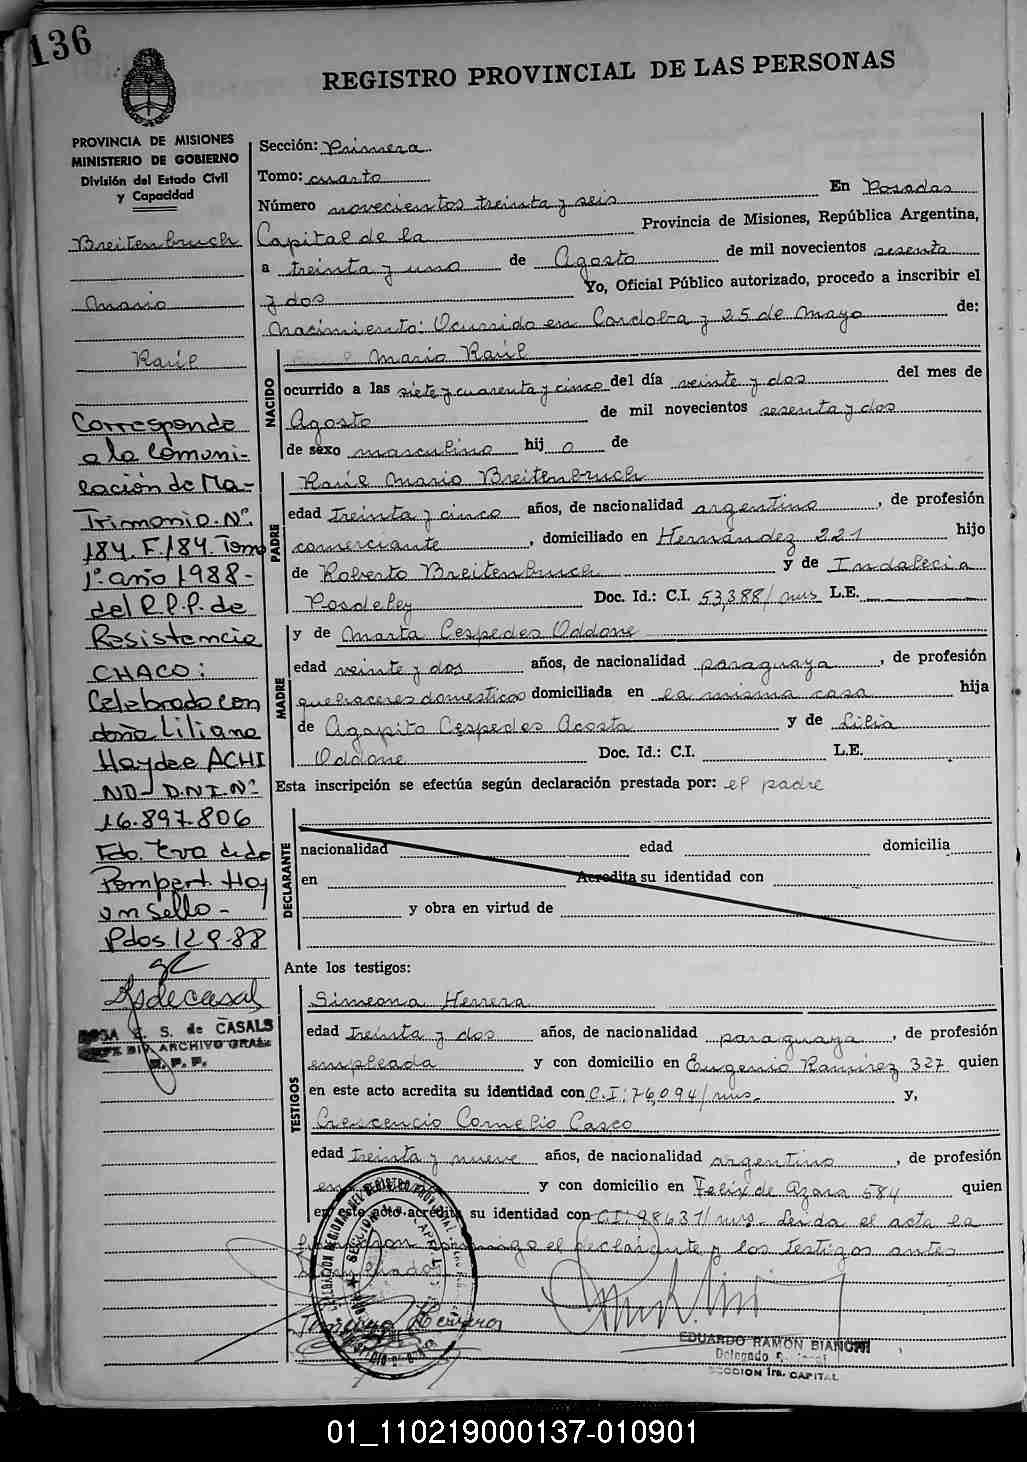 136
REGISTRO PROVINCIAL DE LAS PERSONAS
PROVINCIA DE MISIONES
MINISTERIO DE GOBIERNO
División del Estado Civil
y Capacidad
Breitenbruch
Mario
Raúl
Corresponde
a la Comuni-
cación de Ma-
trimonio. Nº.
184. F. 184. Tomo
1º. año 1988-
del R.P.P. de
Resistencia
CHACO:
Celebrado con
doña Liliana
Haydee ACHI
NO- D.N.I. Nº-
16.897.806
Fdo. Eva de de
Pompert. Hoy
un Sello-
Pdos 12 9-88
S. de CASALS
DIV. ARCHIVO GRAL
R. P. P.
Sección: Primera
Tomo: cuarto
Número novecientos treinta y seis En Posadas
Capital de la Provincia de Misiones, República Argentina,
a treinta y uno de Agosto de mil novecientos sesenta
y dos Yo, Oficial Público autorizado, procedo a inscribir el
Nacimiento: Ocurrido en Cordoba y 25 de Mayo de:
NACIDO
Mario Raúl
ocurrido a las siete y cuarenta y cinco del día veinte y dos del mes de
Agosto de mil novecientos sesenta y dos
de sexo masculino hij o de
PADRE
Raúl Mario Breitenbruch
edad treinta y cinco años, de nacionalidad argentino, de profesión
comerciante, domiciliado en Hernández 221 hijo
de Roberto Breitenbruch y de Indalecia
Posdeley Doc. Id.: C.I. 53,388/mis L.E.
MADRE
y de Marta Cespedes Oddone
edad veinte y dos años, de nacionalidad paraguaya, de profesión
quehaceres domesticos domiciliada en la misma casa hija
de Agapito Cespedes Acosta y de Lilia
Oddone Doc. Id.: C.I. L.E.
Esta inscripción se efectúa según declaración prestada por: el padre
DECLARANTE
nacionalidad edad domicilia
en Acredita su identidad con
y obra en virtud de
Ante los testigos:
TESTIGOS
Simeona Herrera
edad treinta y dos años, de nacionalidad paraguaya, de profesión
empleada y con domicilio en Eugenio Ramirez 327 quien
en este acto acredita su identidad con C.I: 76,094/mis. y,
Crescencio Cornelio Casco
edad treinta y nueve años, de nacionalidad argentino, de profesión
y con domicilio en Felix de Azara 584 quien
en este acto acredita su identidad con C.I: 98637/mis. Leida el acta la
conmigo el declarante y los testigos antes
Herrera
EDUARDO RAMON BIANCHI
Delegado
SECCION 1ra. CAPITAL
01_110219000137-010901